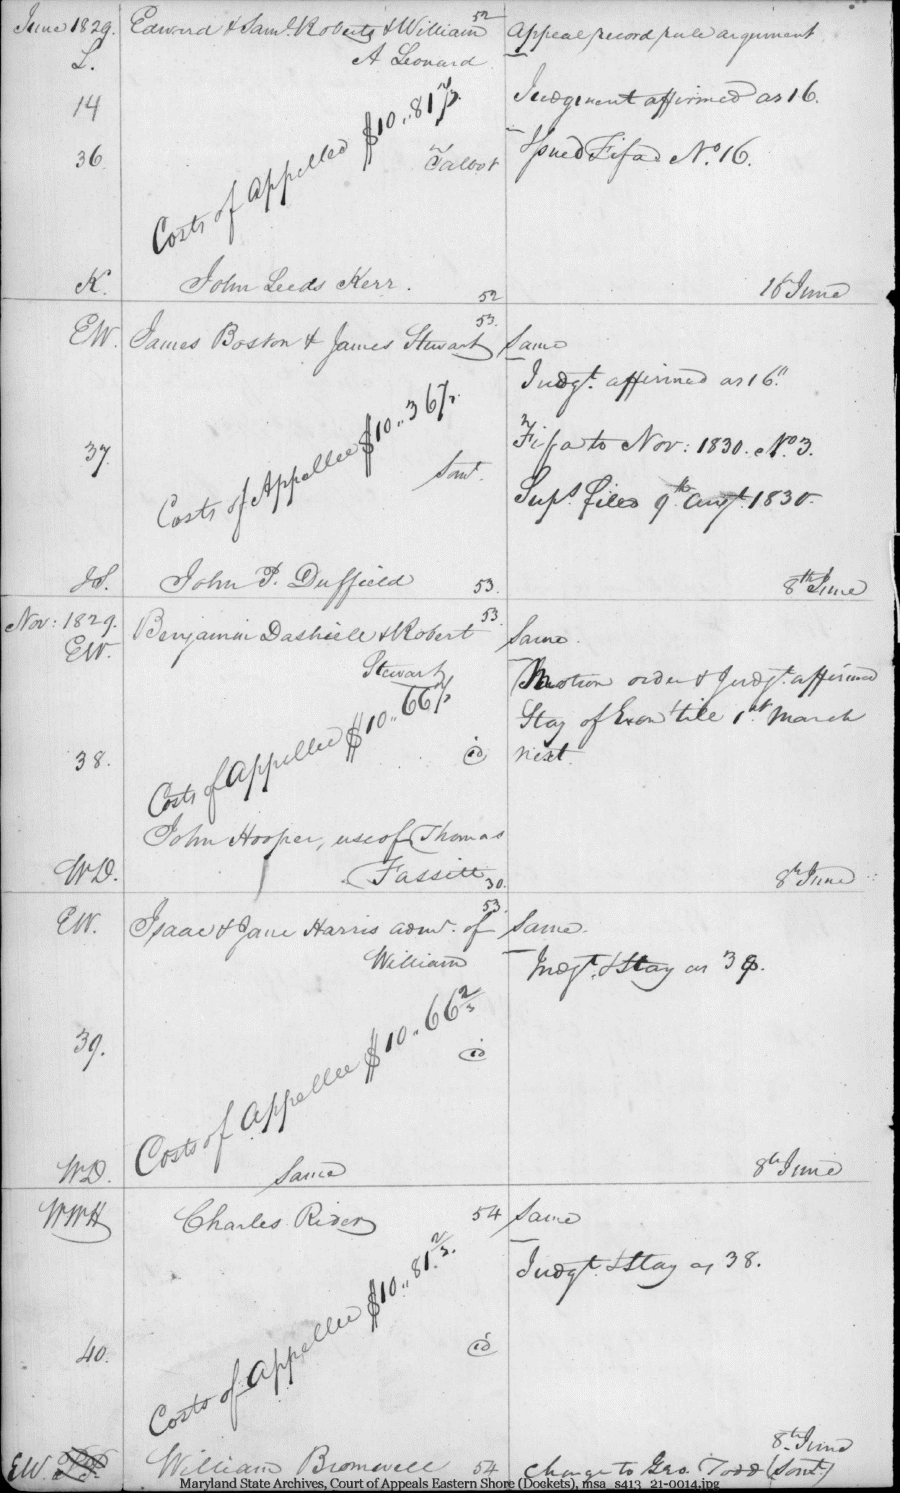 June 1829. Edward & Saml. Roberts & William 52 Appeal record rule argument
L. A Leonard
14 Judgment affirmed as 16.
36 Costs of Appellee $10..81 2/3 Talbot Issued Fifa No. 16.
K. John Leeds Kerr. 52 16 June
EW. James Boston & James Stewart 53. Same
Judgt. affirmed as 16.
37. Costs of Appellee $10..36 Somt. Fifa to Nov: 1830. No. 3.
Sups. filed 9th Augt. 1830.
John P. Duffield 53. 8th June
Nov: 1829. Benjamin Dashiell & Robert 53. Same.
EW. Stewart Motion order & Judgt. affirmed
Stay of Exon till 1st March
38. Costs of Appellee $10..66 2/3 id next.
John Hooper, use of Thomas
WD. Fassitt 30. 8th June
EW. Isaac & Jane Harris admr. of 53. Same.
William Judgt. & Stay as 38.
39. Costs of Appellee $10..66 2/3 id
WD. Same 8th June
WWH Charles Rider 54 Same
Judgt. & Stay as 38.
40. Costs of Appellee $10..81 2/3. id
8th June
EW. William Bromwell 54 Change to Geo. Todd (Somt)
Maryland State Archives, Court of Appeals Eastern Shore (Dockets), msa_s413_21-0014.jpg